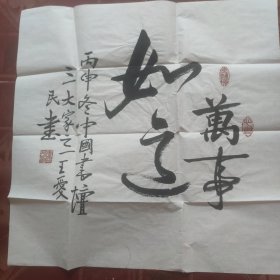 萬事
如意
丙申冬中國書壇
三大家之一王愛
民書